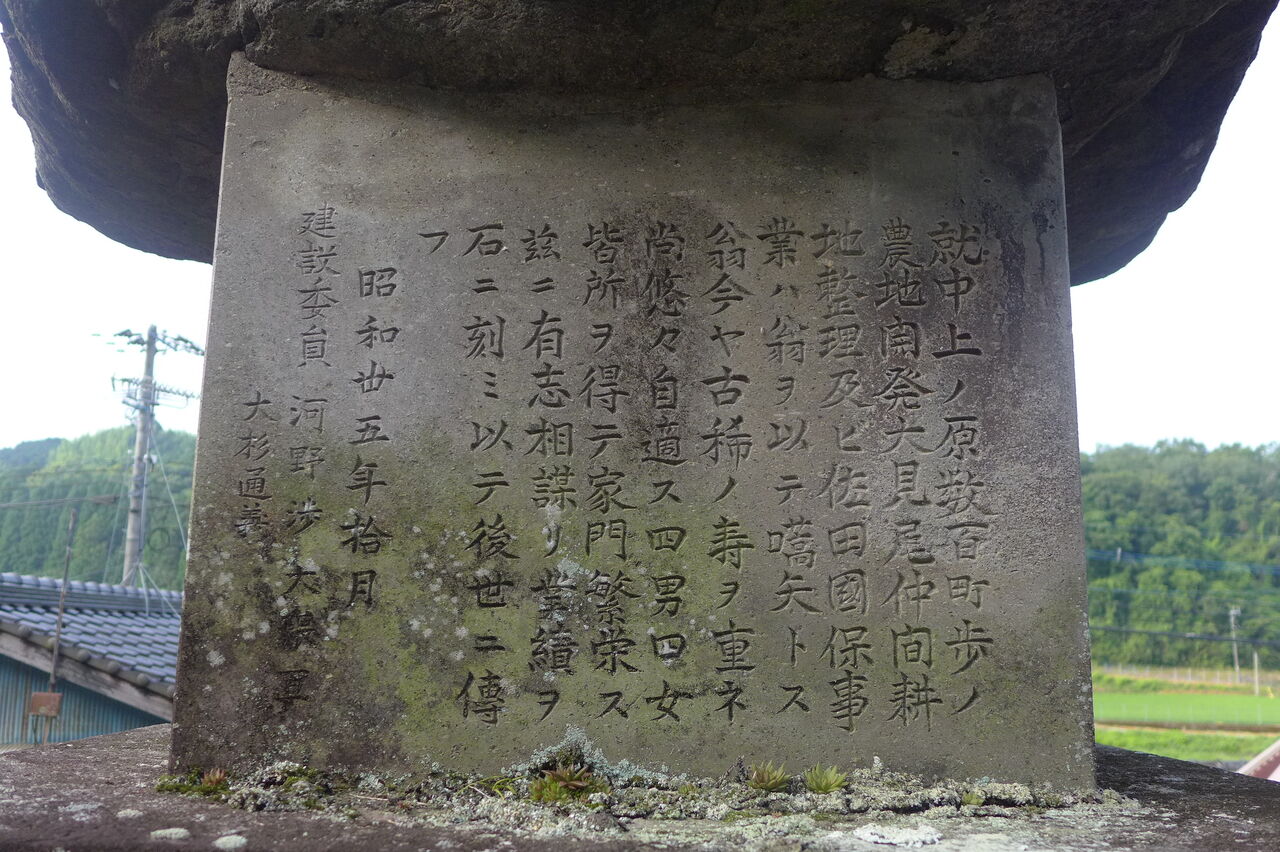 就中上ノ原数百町歩ノ
農地開発大見尾仲間耕
地整理及ビ佐田國保事
業ハ翁ヲ以テ嚆矢トス
翁今ヤ古稀ノ寿ヲ重ネ
尚悠々自適ス四男四女
皆所ヲ得テ家門繁栄ス
茲ニ有志相謀リ業績ヲ
石ニ刻ミ以テ後世ニ傳
フ
昭和丗五年拾月
建設委員 河野渉 大隈
大杉通善